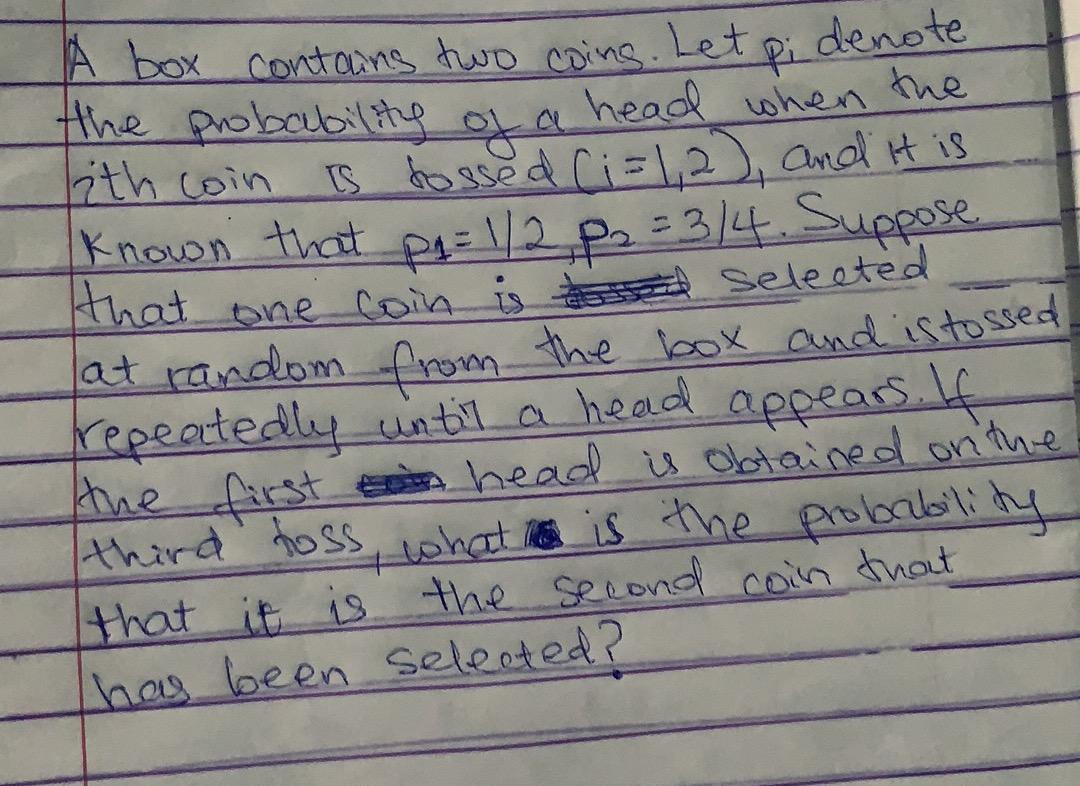 A box contains two coins. Let pi denote
the probability of a head when the
ith coin is tossed (i=1,2), and it is
known that p1=1/2, p2=3/4. Suppose
that one coin is selected
at random from the box and is tossed
repeatedly until a head appears. If
the first head is obtained on the
third toss, what is the probability
that it is the second coin that
has been selected?